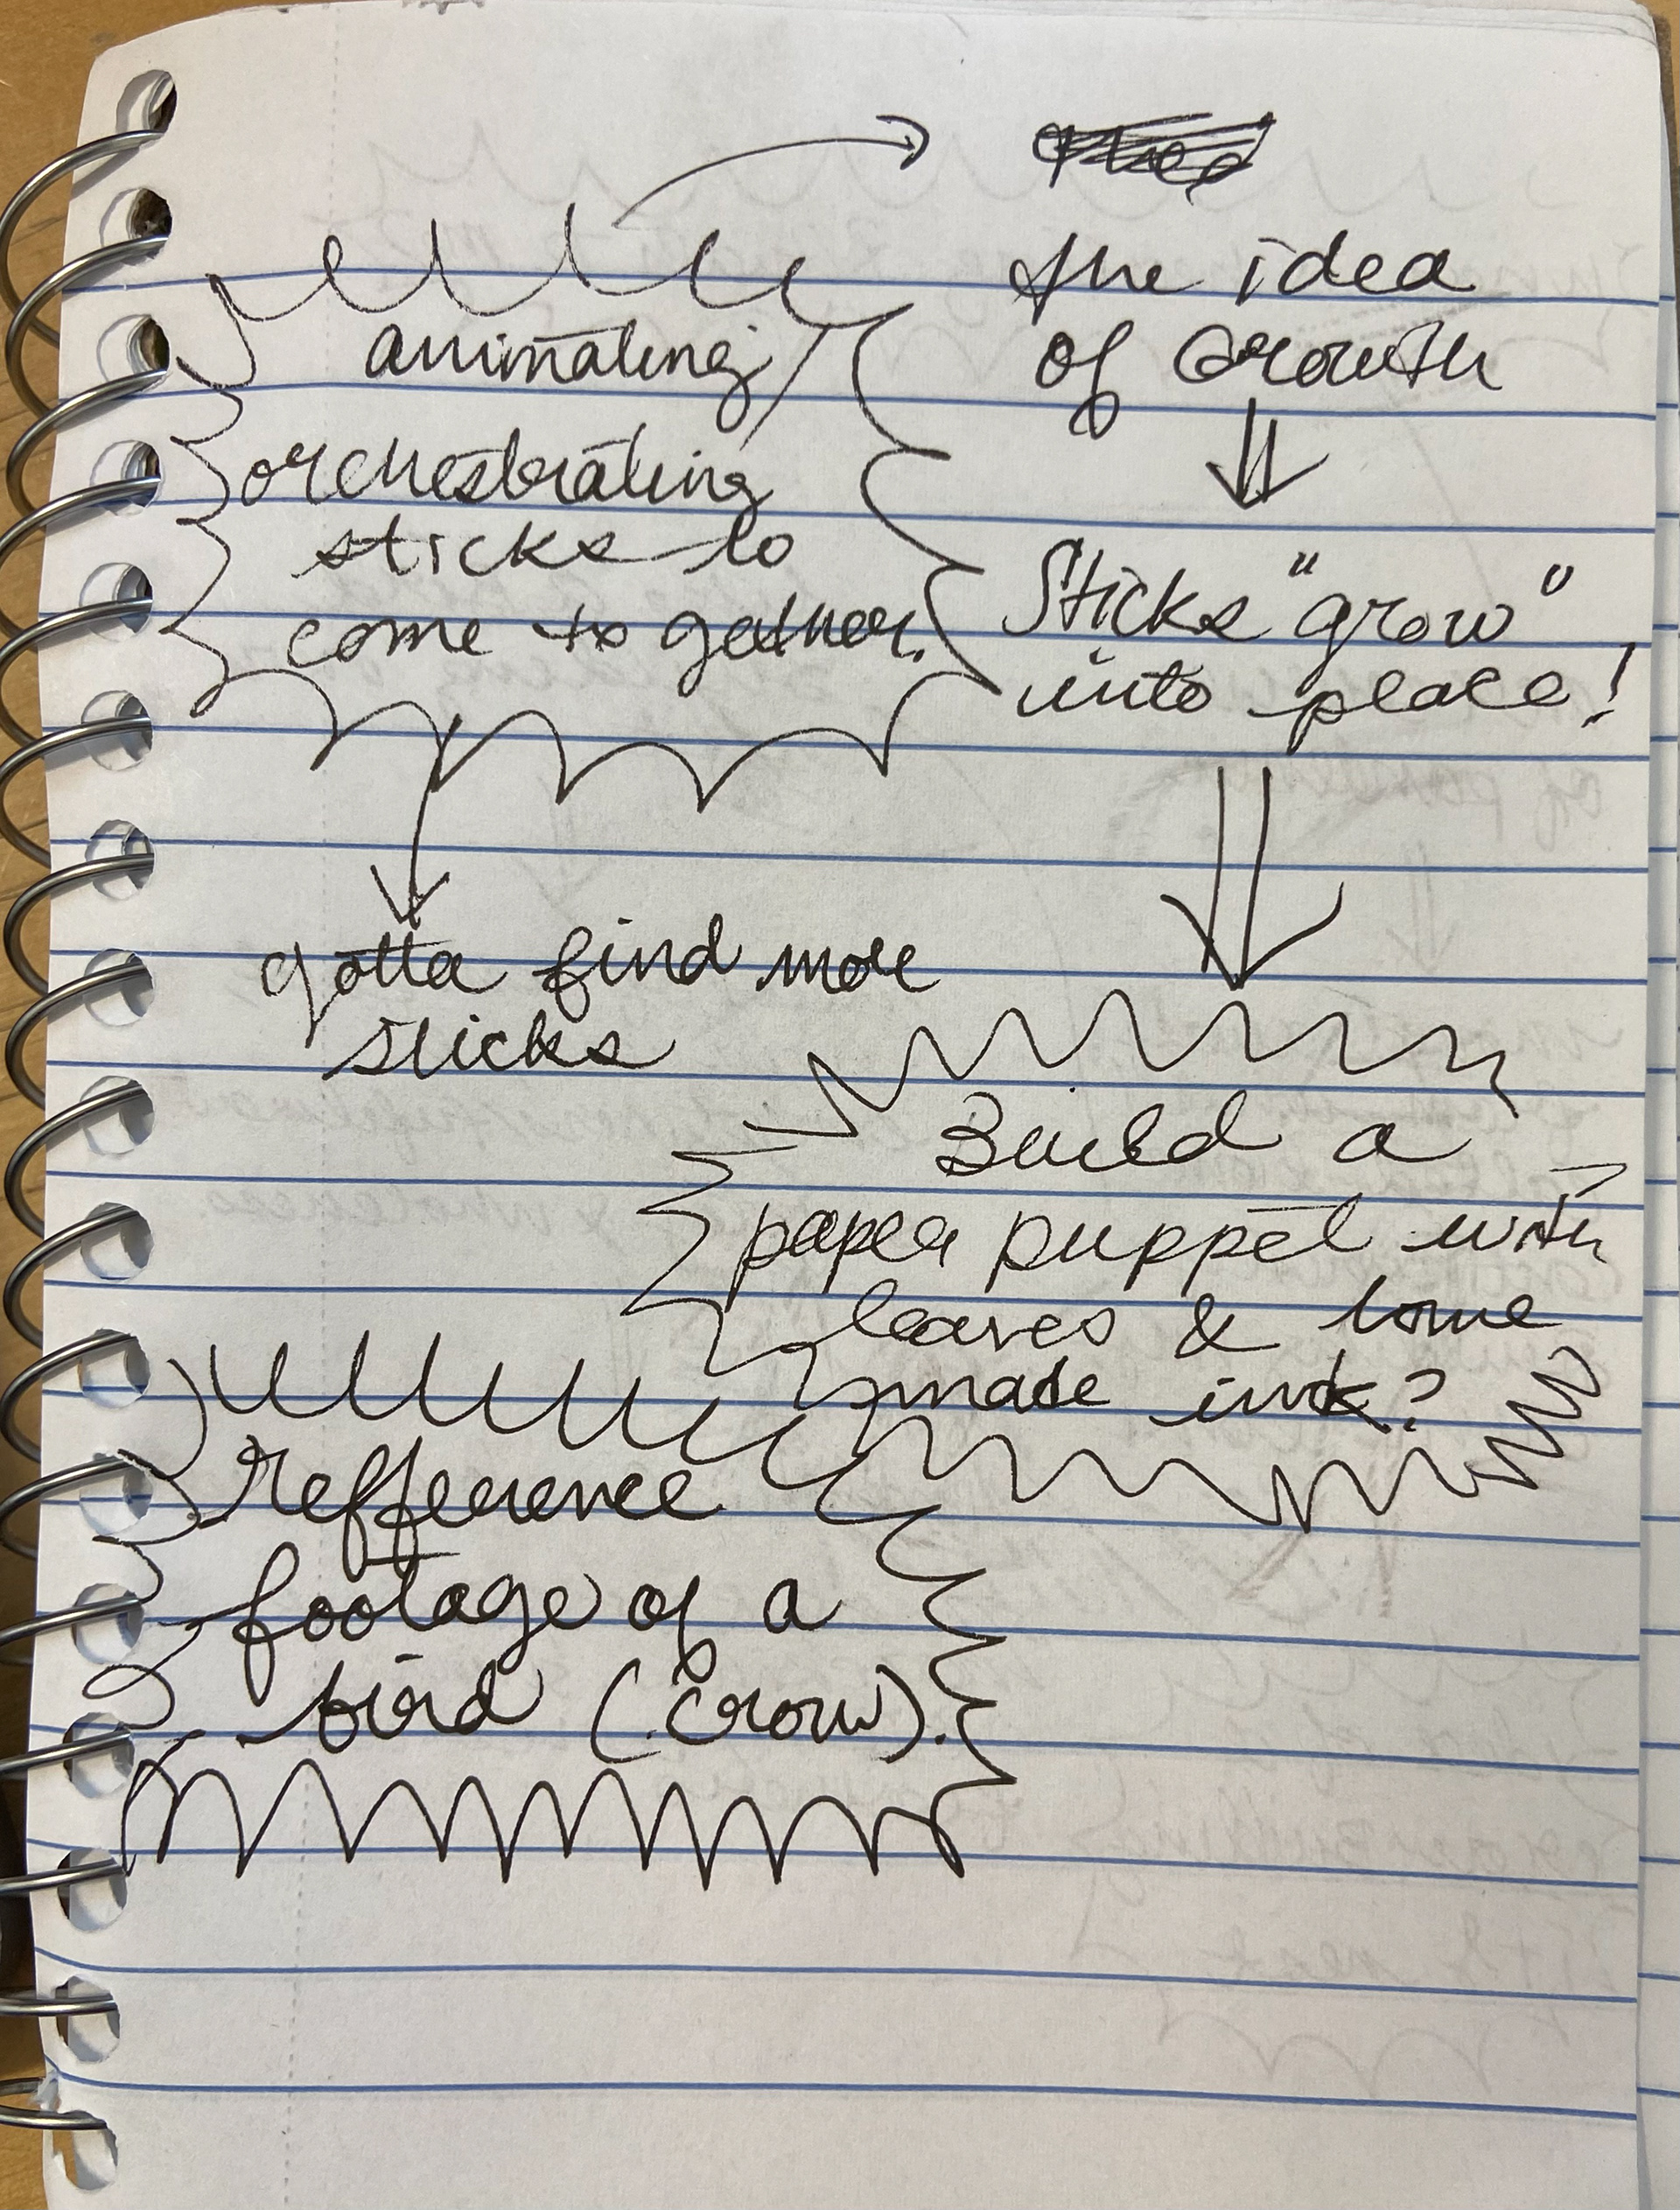 animating/
orchestrating
sticks to
come to gather.
the idea
of Growth
Sticks "grow"
into place!
gotta find more
sticks
Build a
paper puppet with
leaves & home
made ink?
refference
footage of a
bird (crow).